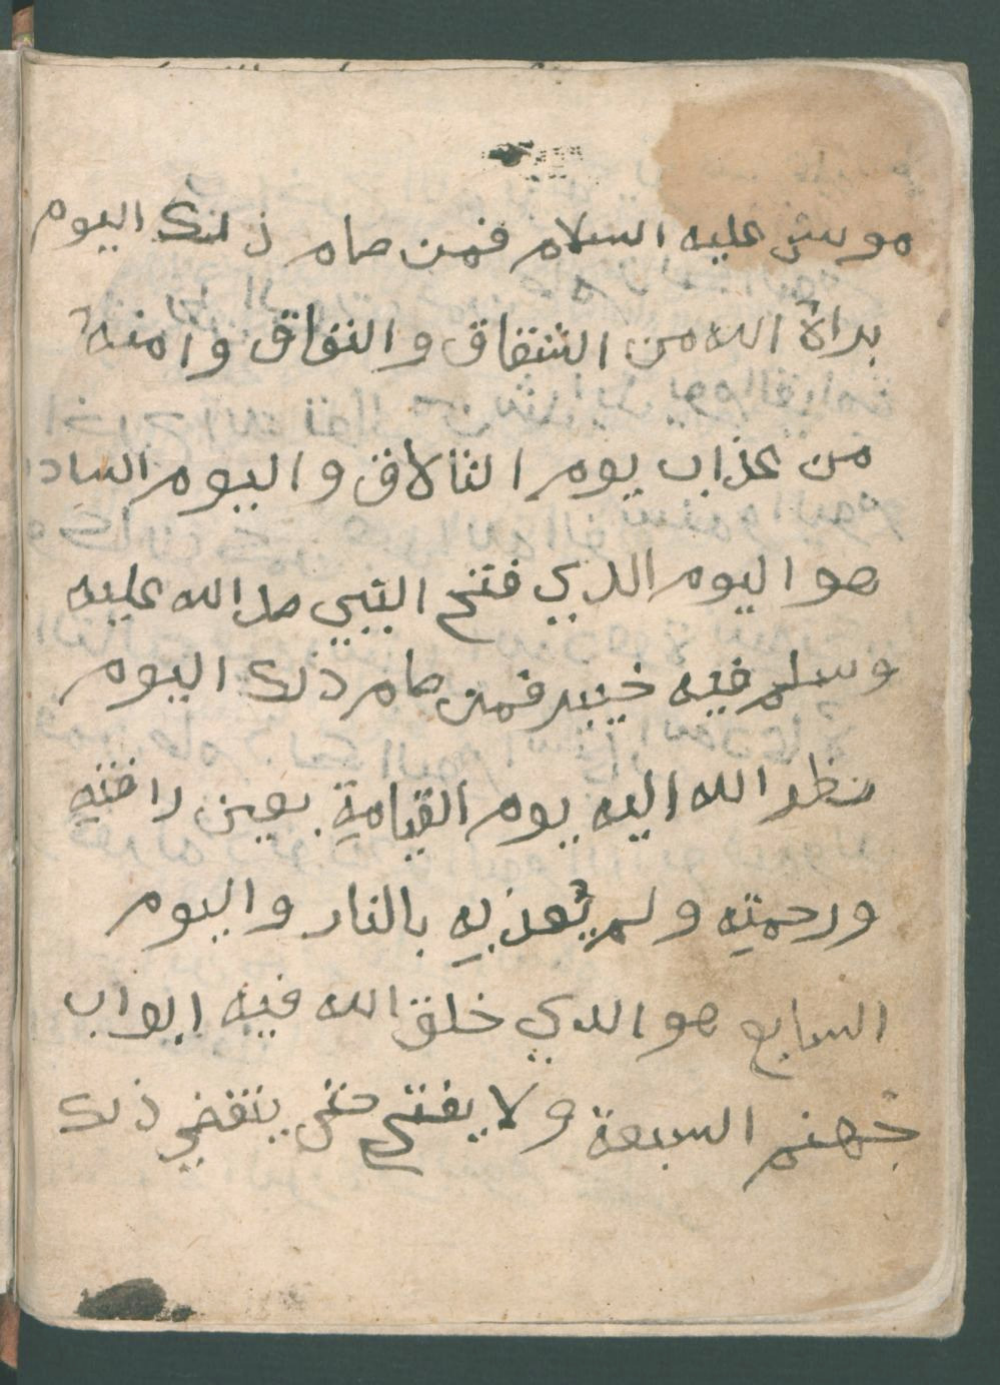 موسى عليه السلام فمن صام ذلك اليوم
براة الله من الشقاق والنفاق وامنه
من عذاب يوم التالاق واليوم السادس
هو اليوم الذي فتح النبي صل الله عليه
وسلم فيه خيبر فمن صام ذلك اليوم
نظر الله اليه يوم القيامة بعين رافته
ورحمته ولم يُعذبه بالنار واليوم
السابع هو الذي خلق الله فيه ابواب
جهنم السبعة ولا يفتح حتى ينقضي ذلك